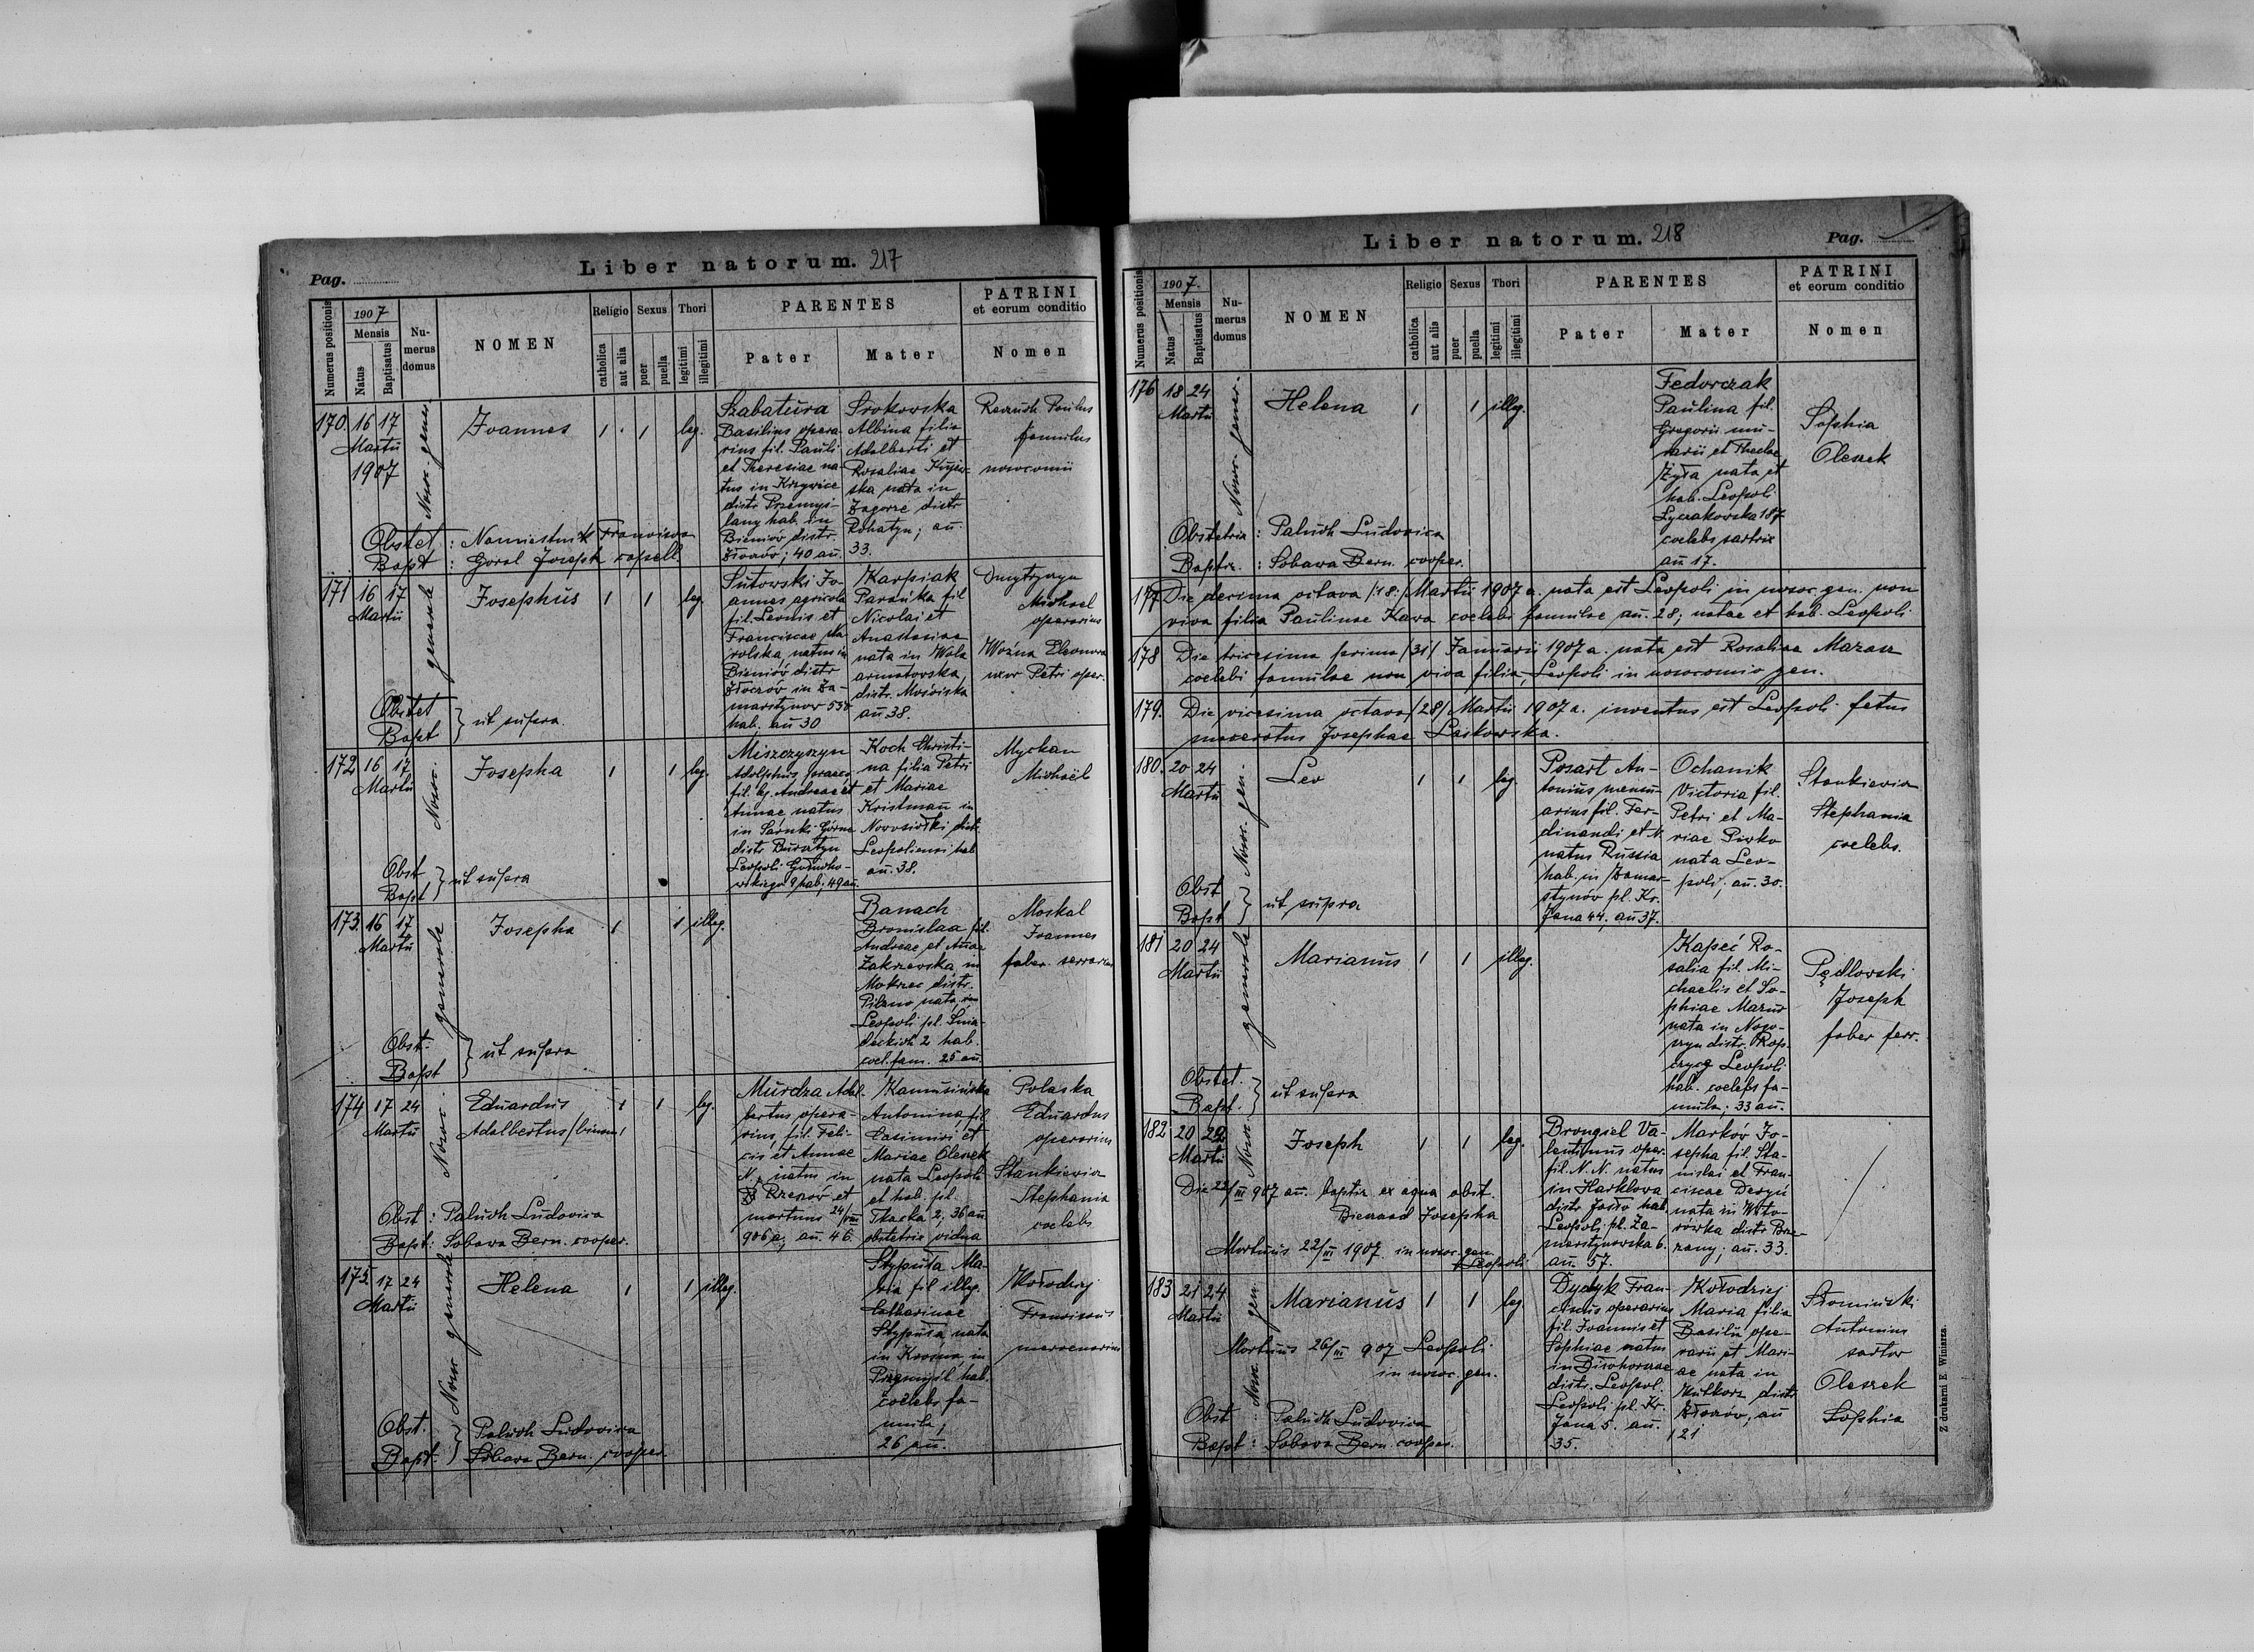 Liber natorum. 217
Pag.
Numerus positionis
1907
Mensis
Natus
Baptisatus
Nu-
merus
domus
NOMEN
Religio
catholica
aut alia
Sexus
puer
puella
Thori
legitimi
illegitimi
PARENTES
Pater
Mater
PATRINI
et eorum conditio
Nomen
170. 16 17
Martii
1907
Nosoc. gener.
Joannes
1 1 leg.
Szabatura
Basilius opera-
rius fil. Pauli
et Theresiae na-
tus in Krzywice
distr. Przemyś-
lany hab. in
Bieniów distr.
Złoczów; 40 an.
Srokowska
Albina filia
Adalberti et
Rosaliae
ska nata in
Zagorze distr.
Rohatyn; an.
33.
Paulus
famulus
nosocomii
Obstet : Namiestnik Francisca
Bapt : Góral Joseph capell.
171 16 17
Martii
generale
Josephus
1 1 leg.
Sutowski Jo-
annes agricola
fil. Leonis et
Franciscae Ma-
rolska, natus in
Bieniów distr.
Złoczów in Za-
marstynow 554
hab. an 30
Karpiak
Parańka fil.
Nicolai et
Anastasiae
nata in Wola
armatowska,
distr. Mościska
an 38.
Dmytryszyn
Michael
operarius
Woźna Eleonora
uxor Petri oper.
Obstet
Bapt } ut supra.
172 16 17
Martii
Nosoc.
Josepha
1 1 leg.
Miszczyszyn
Adolphus
fil. lg. Andreae et
Annae, natus
in Sarnki Górne
distr.
Leopoli
9 hab; 49 an.
Koch Christi-
na filia Petri
et Mariae
Kristman in
Nowosiółki distr.
Leopoliensi hab
an. 38.
Myckan
Michaël
Obst
Bapt } ut supra
173. 16 17
Martii
generale
Josepha
1 1 illeg.
Banach
Bronislaa fil.
Andreae et Annae
Zakrzewska in
Mokrzec distr.
Pilzno nata, in
Leopoli pl. Śnia-
deckich 2 hab.
coel. fam. 25 an.
Moskal
Joannes
faber serrarius
Obst.
Bapt } ut supra
174 17 24
Martii
Nosoc.
Eduardus
Adalbertus /binom/
1 1 leg.
Murdza Adal-
bertus opera-
rius, fil. Feli-
cis et Annae
N., natus in
Rzezów et
mortuus 24/VIII
906 a; an. 46.
Kamusińska
Antonina fil
Casimiri et
Mariae Oleszek
nata Leopoli
et hab. pl.
Tkacka 2; 36 an
obstetrix vidua
Polaska
Eduardus
operarius
Stankiewicz
Stephania
coelebs
Obst : Paluch Ludovica
Bapt : Sobawa Bern. cooper.
175. 17 24
Martii
Nosoc. generale
Helena
1 1 illeg.
Stypuła Ma-
ria fil illeg.
Catharinae
Stypuła, nata
in Krosna, in
Przemyśl hab.
coelebs fa-
mula;
26 an.
Kołodzej
Franciscus
mercenarius
Obst.
Bapt. } Paluch Ludovica
Sobawa Bern. cooper.
Liber natorum. 218
Pag.
Numerus positionis
1907.
Mensis
Natus
Baptisatus
Nu-
merus
domus
NOMEN
Religio
catholica
aut alia
Sexus
puer
puella
Thori
legitimi
illegitimi
PARENTES
Pater
Mater
PATRINI
et eorum conditio
Nomen
176 18 24
Martii
Nosoc. gener.
Helena
1 1 illeg.
Fedorczak
Paulina fil.
Gregorii mu-
rarii et Theclae
Żyła nata et
hab. Leopoli
Łyczakowska 187
coelebs sartrix
an 17.
Sophia
Oleszek
Obstetrix : Paluch Ludovica
Baptiz. : Sobawa Bern. cooper.
177 Die decima octava /18:/ Martii 1907 a. nata est Leopoli in nosoc. gen. non
viva filia Paulinae Kawa coelebi famulae an. 28; natae et hab. Leopoli
178 Die tricesima prima /31/ Januarii 1907 a. nata est Rosaliae Mazan
coelebi famulae non viva filia, Leopoli in nosocomio gen.
179. Die vicesima octava /28/ Martii 1907 a. inventus est Leopoli fetus
maceratus Josephae Laskowska.
180. 20 24
Martii
Nosoc. gen.
Leo
1 1 leg.
Posart An-
tonius
arius fil. Fer-
dinandi et N.
natus Russia
hab. in Zamar-
stynów pl. Kr.
Jana 44. an 37.
Ochanik
Victoria fil.
Petri et Ma-
riae Piwko
nata Leo-
poli, an. 30.
Stankiewicz
Stephania
coelebs.
Obst
Bapt } ut supra
181 20 24
Martii
generale
Marianus
1 1 illeg.
Kapeć Ro-
salia fil. Mi-
chaelis et So-
phiae Mazur
nata in Nogo-
szyn distr. Rop-
czyce Leopoli
hab. coelebs fa-
mula; 33 an.
Pędlowski
Joseph
faber ferr.
Obstet.
Bapt. } ut supra
182 20 22
Martii
Nosoc
Joseph
1 1 leg.
Brongiel Va-
lentinus oper.
fil. N. N. natus
in Harklowa
distr. Jasło hab.
Leopoli pl. Za-
marstynowska 6.
an. 57.
Markóv Jo-
sepha fil. Sta-
nislai et Fran-
ciscae
nata in Wito-
rówka distr. Brze-
żany; an. 33.
Die 22/III 907 an. baptiz. ex aqua obst.
Josepha
Mortuus 22/III 1907 in nosoc. gen.
Leopoli
183 21 24
Martii
Nosoc. gen.
Marianus
1 1 leg.
Dydyk Fran-
ciscus operarius
fil. Joannis et
Sophiae natus
in
distr. Leopol.
Leopoli pl. Kr.
Jana 5. an.
35.
Kołodziej
Maria filia
Basilii ope-
rarii et Mari-
ae nata in
Kutkorz distr
Złoczów, an
21
Słomiński
Antonius
sartor
Oleszek
Sophia
Mortuus 26/III 907 Leopoli
in nosoc. gen.
Obst : Paluch Ludovica
Bapt : Sobawa Bern. cooper.
Z drukarni E. Winiarza.